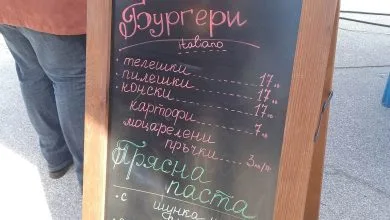 Бургери
Наваго
· телешки 17лв
· пилешки 17лв
· конски 17лв
картофи 7лв
моцарелени
пръчки 3лв/п
Прясна
паста
· с шунка